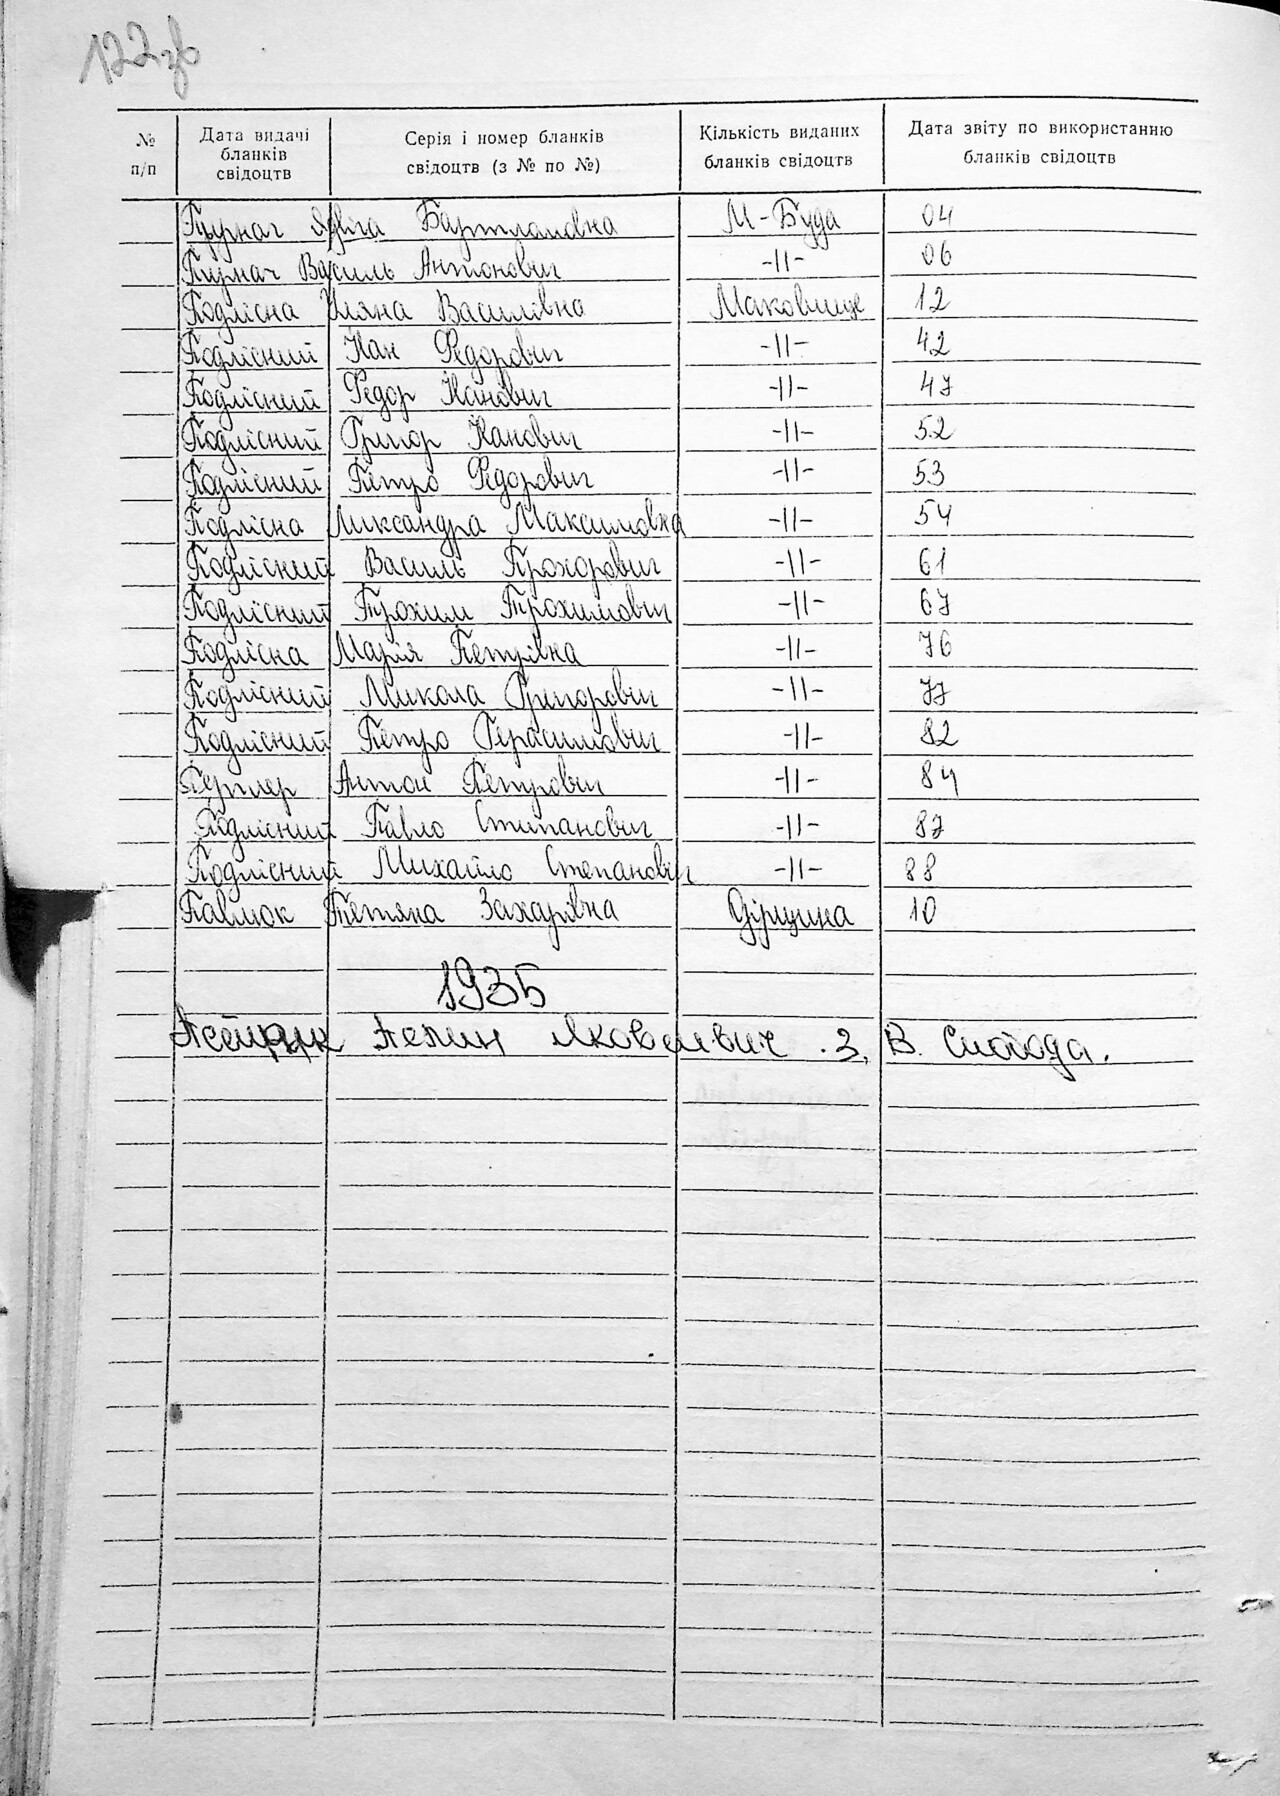 122зв
№ п/п
Дата видачі бланків свідоцтв
Серія і номер бланків свідоцтв (з № по №)
Кількість виданих бланків свідоцтв
Дата звіту по використанню бланків свідоцтв
Ядвіга М-Буда 04
Василь Антонович -II- 06
Подлісна Уляна Василівна Маковище 12
Подлісний Іван Федорович -II- 42
Подлісний Федор Іванович -II- 47
Подлісний Григор Іванович -II- 52
Подлісний Петро Федорович -II- 53
Подлісна Ликсандра Максимовна -II- 54
Подлісний Василь Прохорович -II- 61
Подлісний Трохим Трохимович -II- 67
Подлісна Марія Петрівна -II- 76
Подлісний Микола Григорович -II- 77
Подлісний Петро Герасимович -II- 82
Антон Петрович -II- 84
Подлісний Павло Степанович -II- 87
Подлісний Михайло Степанович -II- 88
Павлюк Тетяна Захарівна 10
1935
Яковлевич . з. В. Слобода.